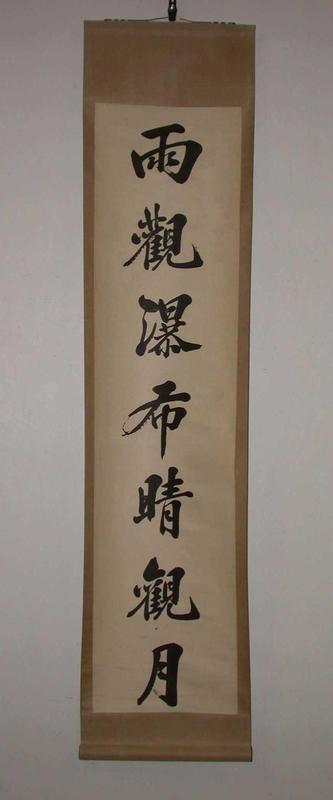 雨觀瀑布晴觀月